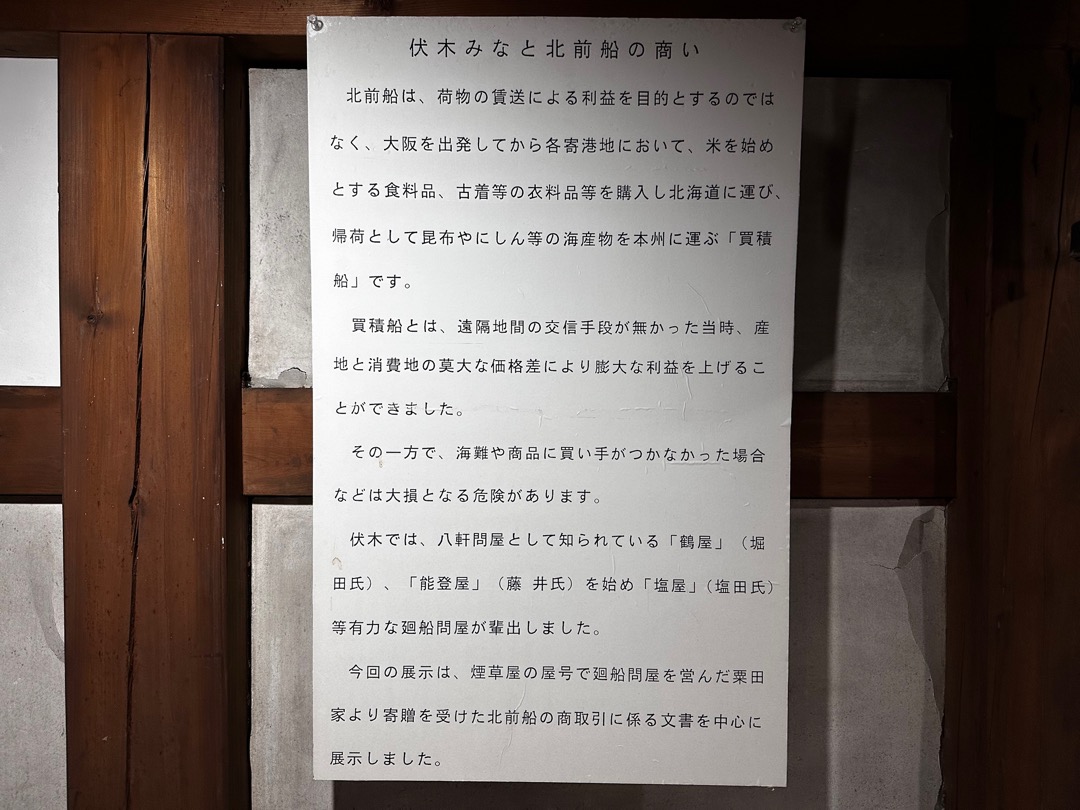 伏木みなと北前船の商い
北前船は、荷物の賃送による利益を目的とするのでは
なく、大阪を出発してから各寄港地において、米を始め
とする食料品、古着等の衣料品等を購入し北海道に運び、
帰荷として昆布やにしん等の海産物を本州に運ぶ「買積
船」です。
買積船とは、遠隔地間の交信手段が無かった当時、産
地と消費地の莫大な価格差により膨大な利益を上げるこ
とができました。
その一方で、海難や商品に買い手がつかなかった場合
などは大損となる危険があります。
伏木では、八軒問屋として知られている「鶴屋」（堀
田氏）、「能登屋」（藤 井氏）を始め「塩屋」（塩田氏）
等有力な廻船問屋が輩出しました。
今回の展示は、煙草屋の屋号で廻船問屋を営んだ粟田
家より寄贈を受けた北前船の商取引に係る文書を中心に
展示しました。